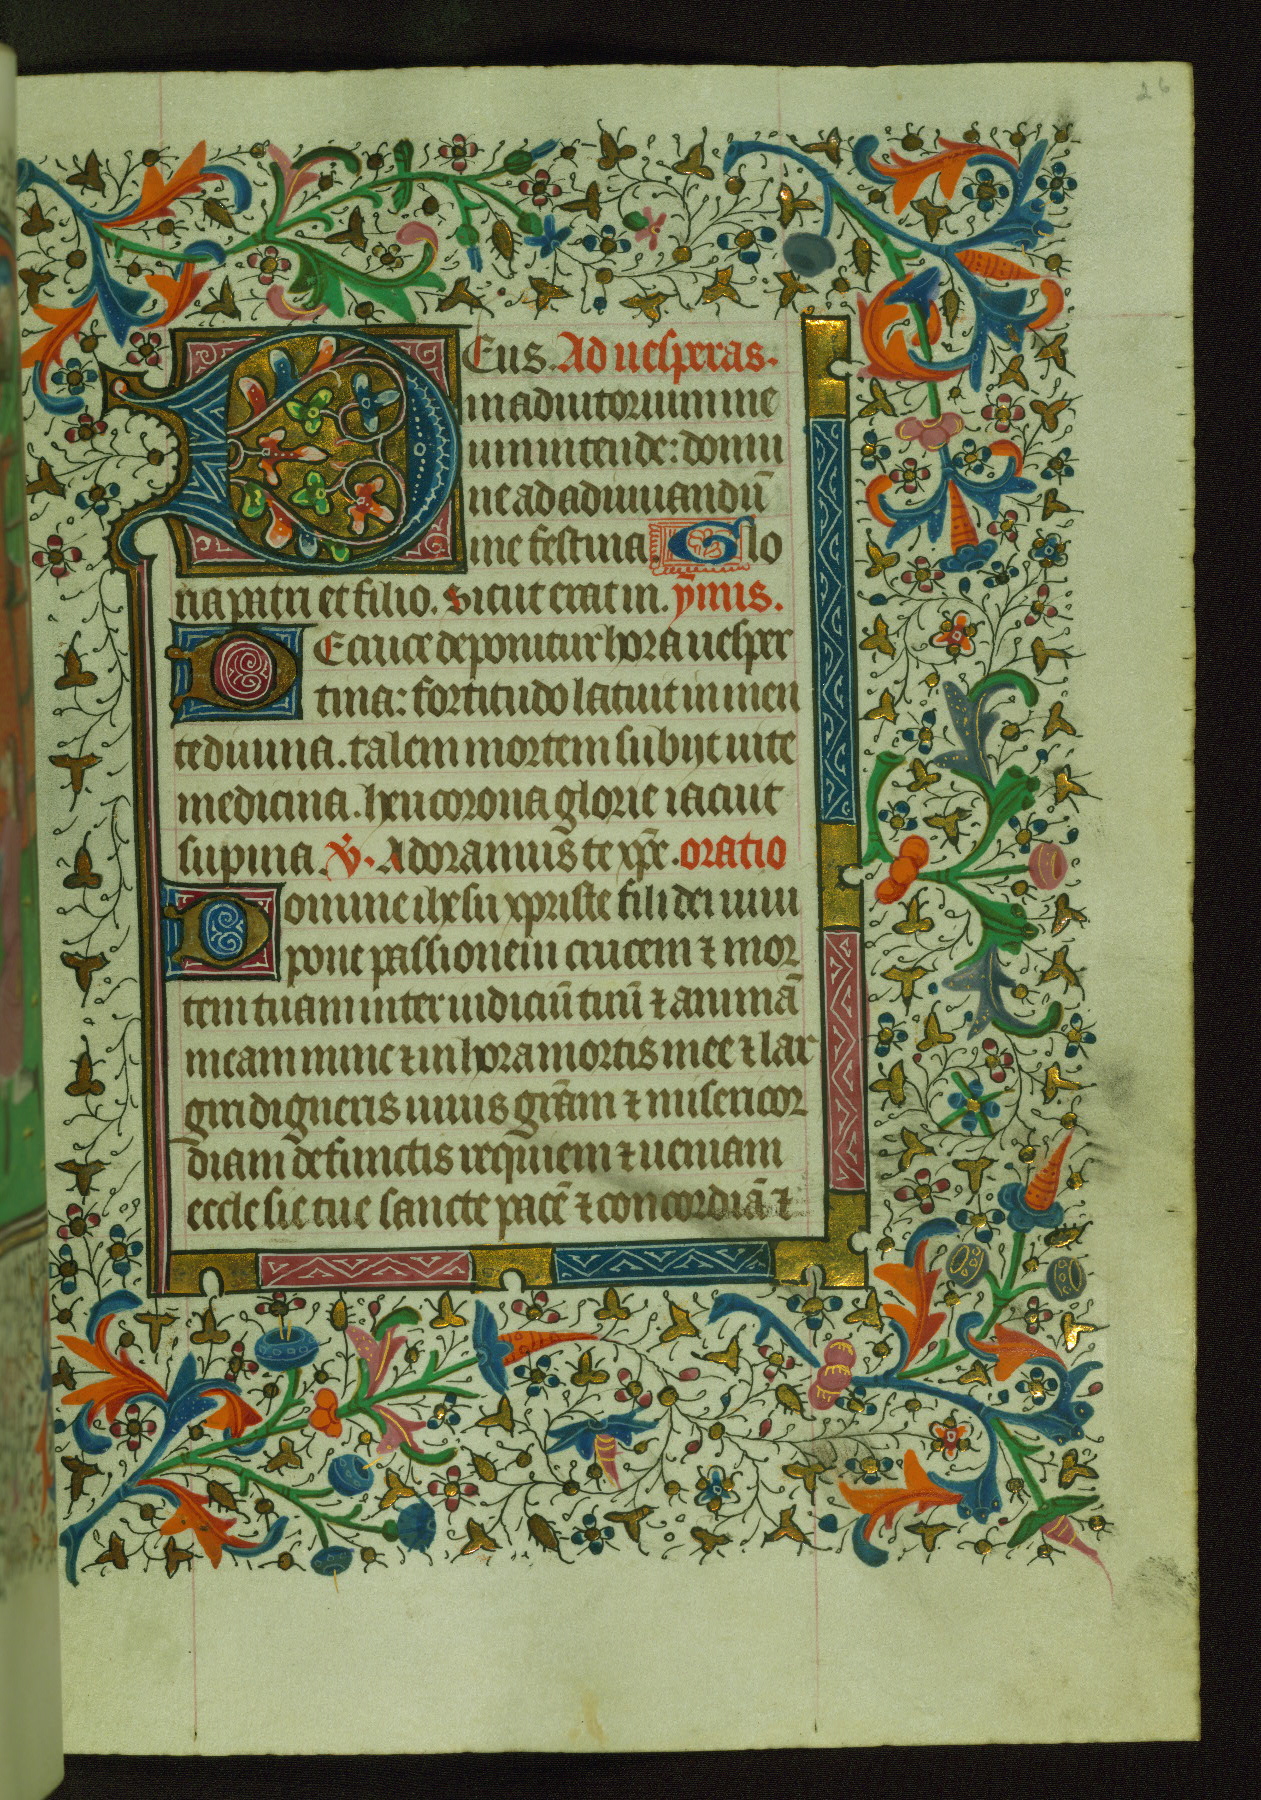 26
DEus. Ad uesperas.
in adiutorium me
um intende: domi
ne ad adiuuandū
me festina. Glo
ria patri et filio. Sicut erat in. ȳmus.
DE cruce deponitur hora uesper
tina: fortitudo latuit in men
te diuina. talem mortem subijt uite
medicina. heu corona glorie iacuit
supina. V̊. Adoramus te xp̄e. oratio
Domine ihesu xpriste fili dei uiui
pone passionem crucem ⁊ mor
tem tuam inter iudiciū tuū ⁊ animā
meam nunc ⁊ in hora mortis mee ⁊ lar
giri digneris uiuis grām ⁊ misericor
diam defunctis requiem ⁊ ueniam
ecclesie tue sancte pacē ⁊ concordiā ⁊